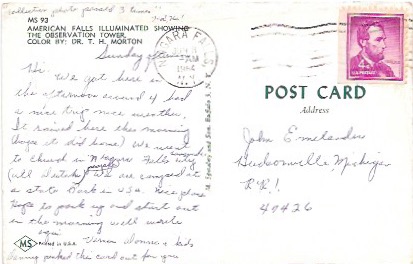 collectors photo
MS 93
AMERICAN FALLS ILLUMINATED SHOWING
THE OBSERVATION TOWER.
COLOR BY: DR. T. H. MORTON
Sunday
Hi.
We got here in
the afternoon around 4 had
a nice trip - nice weather.
It rained here this morning
hope it did home) We went
to church in Niagara Falls City
(all Dutch) We are camped at
a state Park in USA.
to pack up and start out
in the morning will write
again
Vernon Donna & kids
having picked the card out for you
MS Printed in U.S.A.
NIAGARA FALLS
N.Y.
4¢
U.S. POSTAGE
POST CARD
Address
John Emelander
Hudsonville, Michigan
R.R.1.
49426